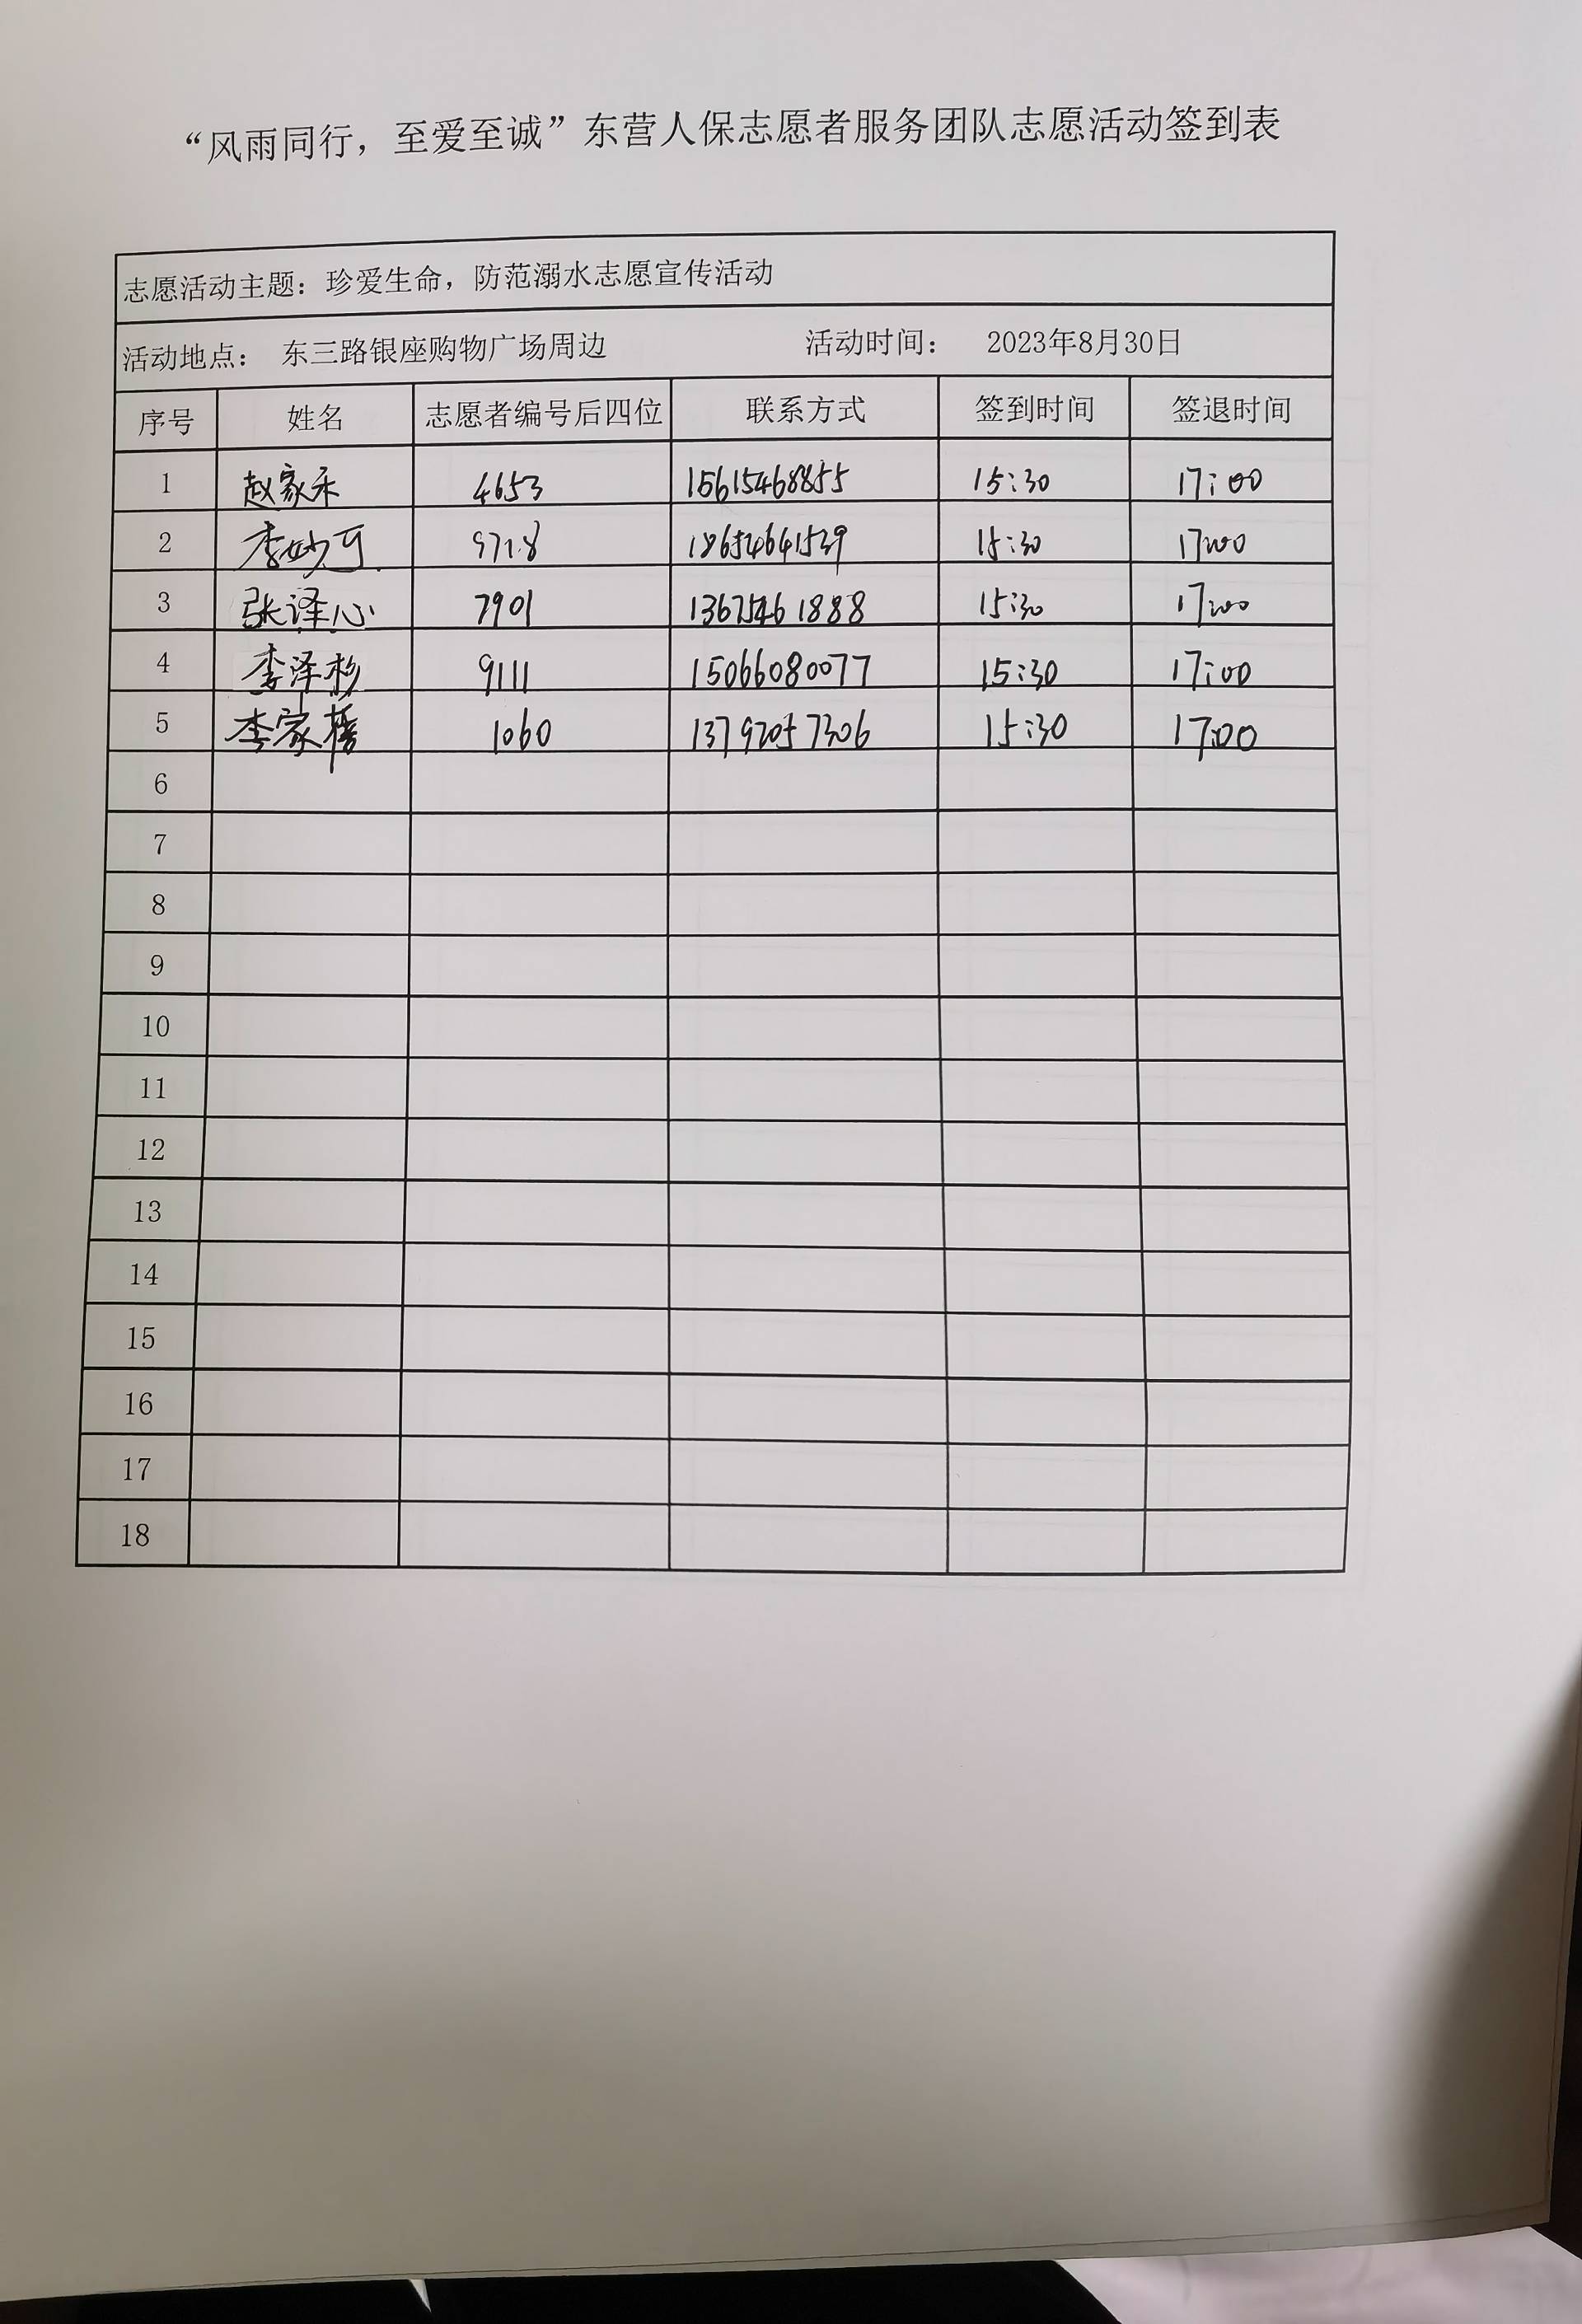 “风雨同行，至爱至诚”东营人保志愿者服务团队志愿活动签到表
志愿活动主题：珍爱生命，防范溺水志愿宣传活动
活动地点： 东三路银座购物广场周边 活动时间： 2023年8月30日
序号 姓名 志愿者编号后四位 联系方式 签到时间 签退时间
1 赵家禾 4653 15615468855 15:30 17:00
2 李妙可 9718 18654641539 15:30 17:00
3 张译心 7901 13675461888 15:30 17:00
4 李泽杉 9111 15066080077 15:30 17:00
5 李家 1060 13792057306 15:30 17:00
6
7
8
9
10
11
12
13
14
15
16
17
18